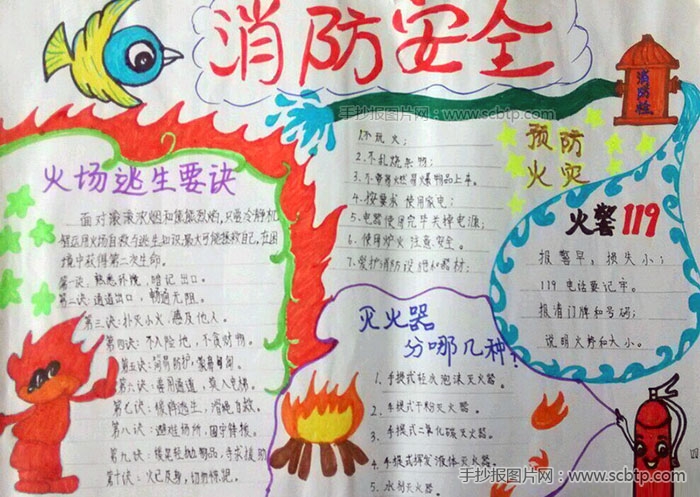 消防安全
手抄报图片网：www.scbtp.com
消防栓
火场逃生要诀
面对滚滚浓烟和熊熊烈焰，只要冷静机
智运用火场自救与逃生知识，最大可能拯救自己，在困
境中获得第二次生命。
第一诀：熟悉环境，暗记出口。
第二诀：通道出口，畅通无阻。
第三诀：扑灭小火，惠及他人。
第四诀：不入险地，不贪财物。
第五诀：简易防护，蒙鼻匍匐。
第六诀：善用通道，莫入电梯。
第七诀：缓降逃生，滑绳自救。
第八诀：避难场所，固守待援。
第九诀：缓晃轻抛物品，寻求援助
第十诀：火已及身，切勿惊跑。
预防
火灾
1.不玩火；
2.不乱烧杂物；
4.按要求使用家电；
5.电器使用完毕关掉电源；
6.使用炉火注意安全。
7.爱护消防设施和器材；
火警119
报警早，损失小；
119电话要记牢。
报清门牌和号码；
说明火势和大小。
灭火器
分哪几种？
1.手提式轻水泡沫灭火器。
2.手提式干粉灭火器。
3.手提式二氧化碳灭火器。
4.手提式挥发液体灭火器。
5.水剂灭火器。
四
手抄报图片网：www.scbtp.com